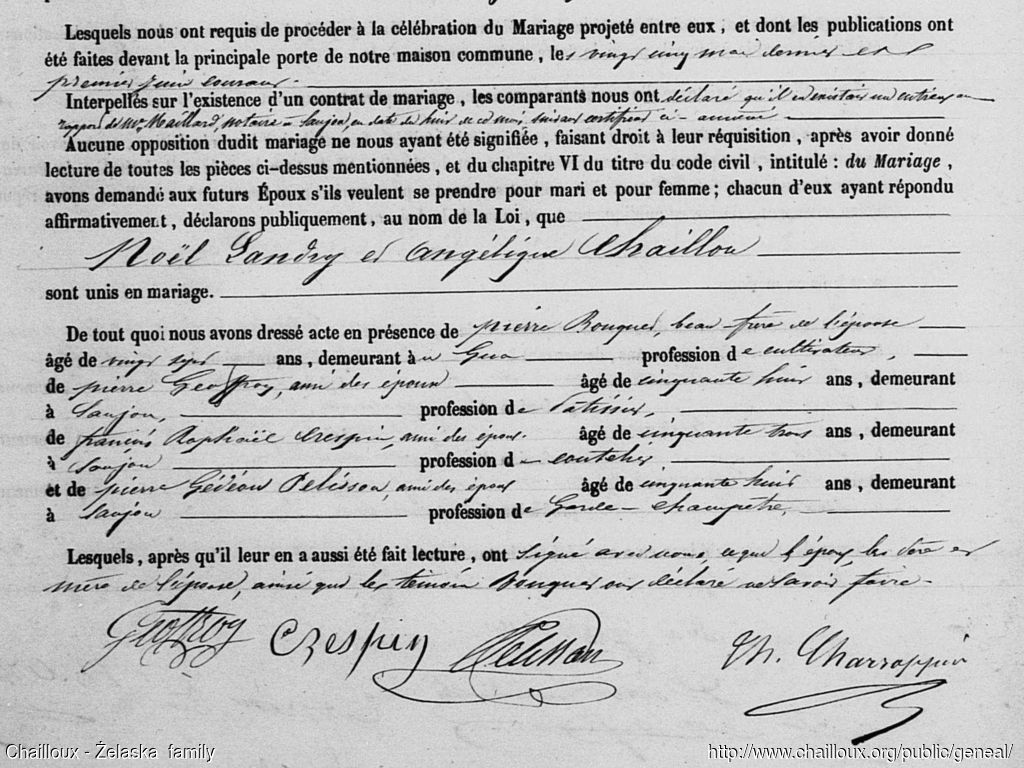 Lesquels nous ont requis de procéder à la célébration du Mariage projeté entre eux, et dont les publications ont
été faites devant la principale porte de notre maison commune, les vingt cinq mai dernier et
premier juin courant.
Interpellés sur l'existence d'un contrat de mariage, les comparants nous ont déclaré qu'il en existait un entr'eux au
rapport de Me Maillard, notaire à Saujon, en date du huit de ce mois, suivant certificat ci-annexé
Aucune opposition dudit mariage ne nous ayant été signifiée, faisant droit à leur réquisition, après avoir donné
lecture de toutes les pièces ci-dessus mentionnées, et du chapitre VI du titre du code civil, intitulé: du Mariage,
avons demandé aux futurs Époux s'ils veulent se prendre pour mari et pour femme; chacun d'eux ayant répondu
affirmativement, déclarons publiquement, au nom de la Loi, que
Noël Landry et Angélique Chaillou
sont unis en mariage.
De tout quoi nous avons dressé acte en présence de pierre Bouquet, beau-frère de l'épouse
âgé de vingt sept ans, demeurant à au Gua profession de cultivateur,
de pierre Geoffroy, ami des époux âgé de cinquante huit ans, demeurant
à Saujon, profession de Patissier,
de françois Raphaël Crespin, ami des époux. âgé de cinquante trois ans, demeurant
à Saujon profession de
et de pierre Gédéon Pelisson, ami des époux âgé de cinquante huit ans, demeurant
à Saujon profession de Garde-champêtre,
Lesquels, après qu'il leur en a aussi été fait lecture, ont signé avec nous, ce que l'époux, les père et
mère de l'épouse, ainsi que le témoin Bouquet ont déclaré ne savoir faire.
Geoffroy Crespin Pelisson Th. Charroppin
Chailloux - Żelaska family http://www.chailloux.org/public/geneal/